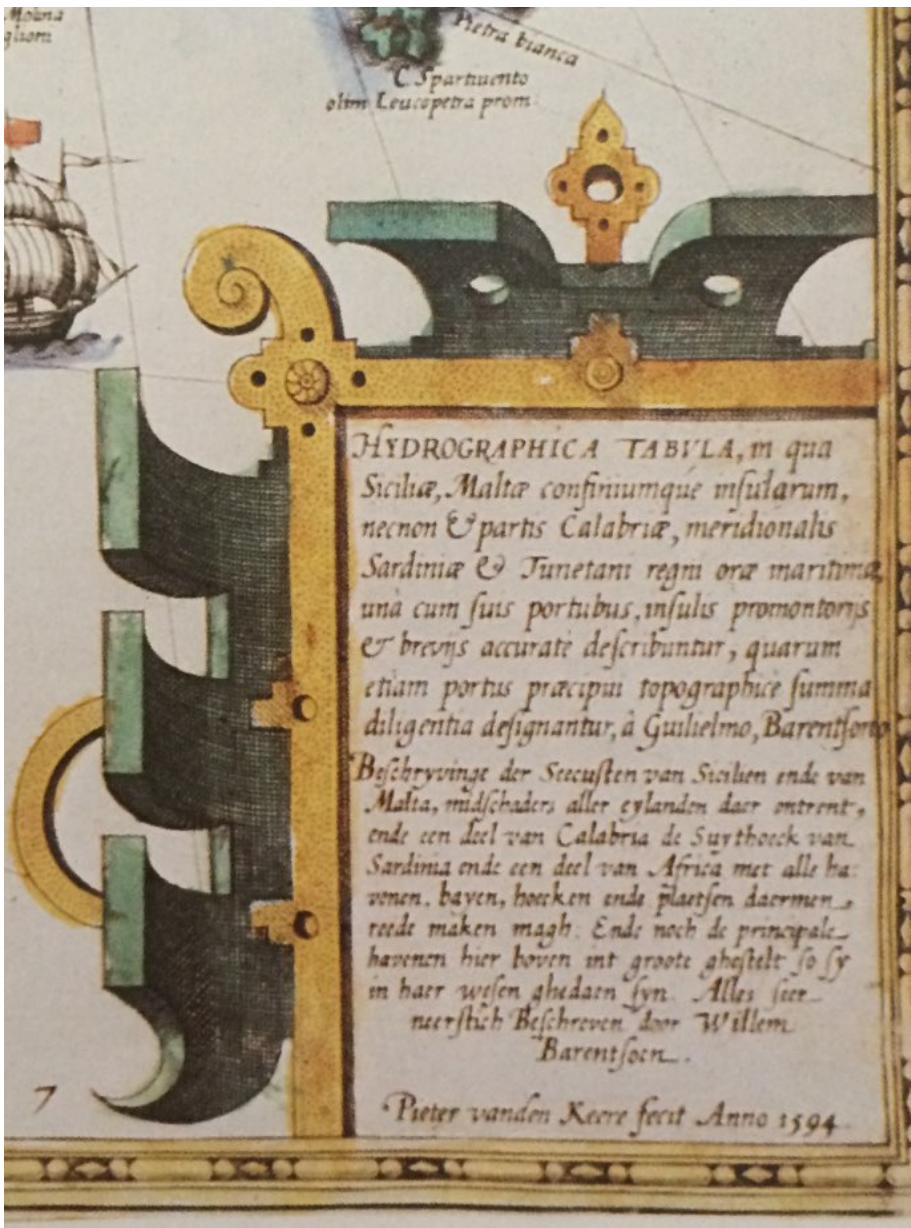 Molina
glioni
Pietra bianca
C. Spartiuento
olim Leucopetra prom:
HYDROGRAPHICA TABVLA, in qua
Siciliæ, Maltæ confiniumqúe inſularum,
necnon & partis Calabriæ, meridionalis
Sardiniæ & Tunetani regni oræ maritimæ,
unà cum ſuis portubus, inſulis promontorijs
& brevijs accuratè deſcribuntur, quarum
etiam portus præcipui topographicè ſumma
diligentia deſignantur, à Guilielmo, Barentſonio
Beſchryvinge der Seecuſten van Sicilien ende van
Malta, midſchaders aller eylanden daer ontrent,
ende een deel van Calabria de Suythoeck van
Sardinia ende een deel van Africa met alle ha:
venen, bayen, hoecken ende plaetſen daermen
reede maken magh: Ende noch de principale
havenen hier boven int groote gheſtelt ſo ſy
in haer weſen ghedaen ſyn. Alles ſeer
neerſtich Beſchreven door Willem
Barentſoen.
Pieter vanden Keere fecit Anno 1594
7